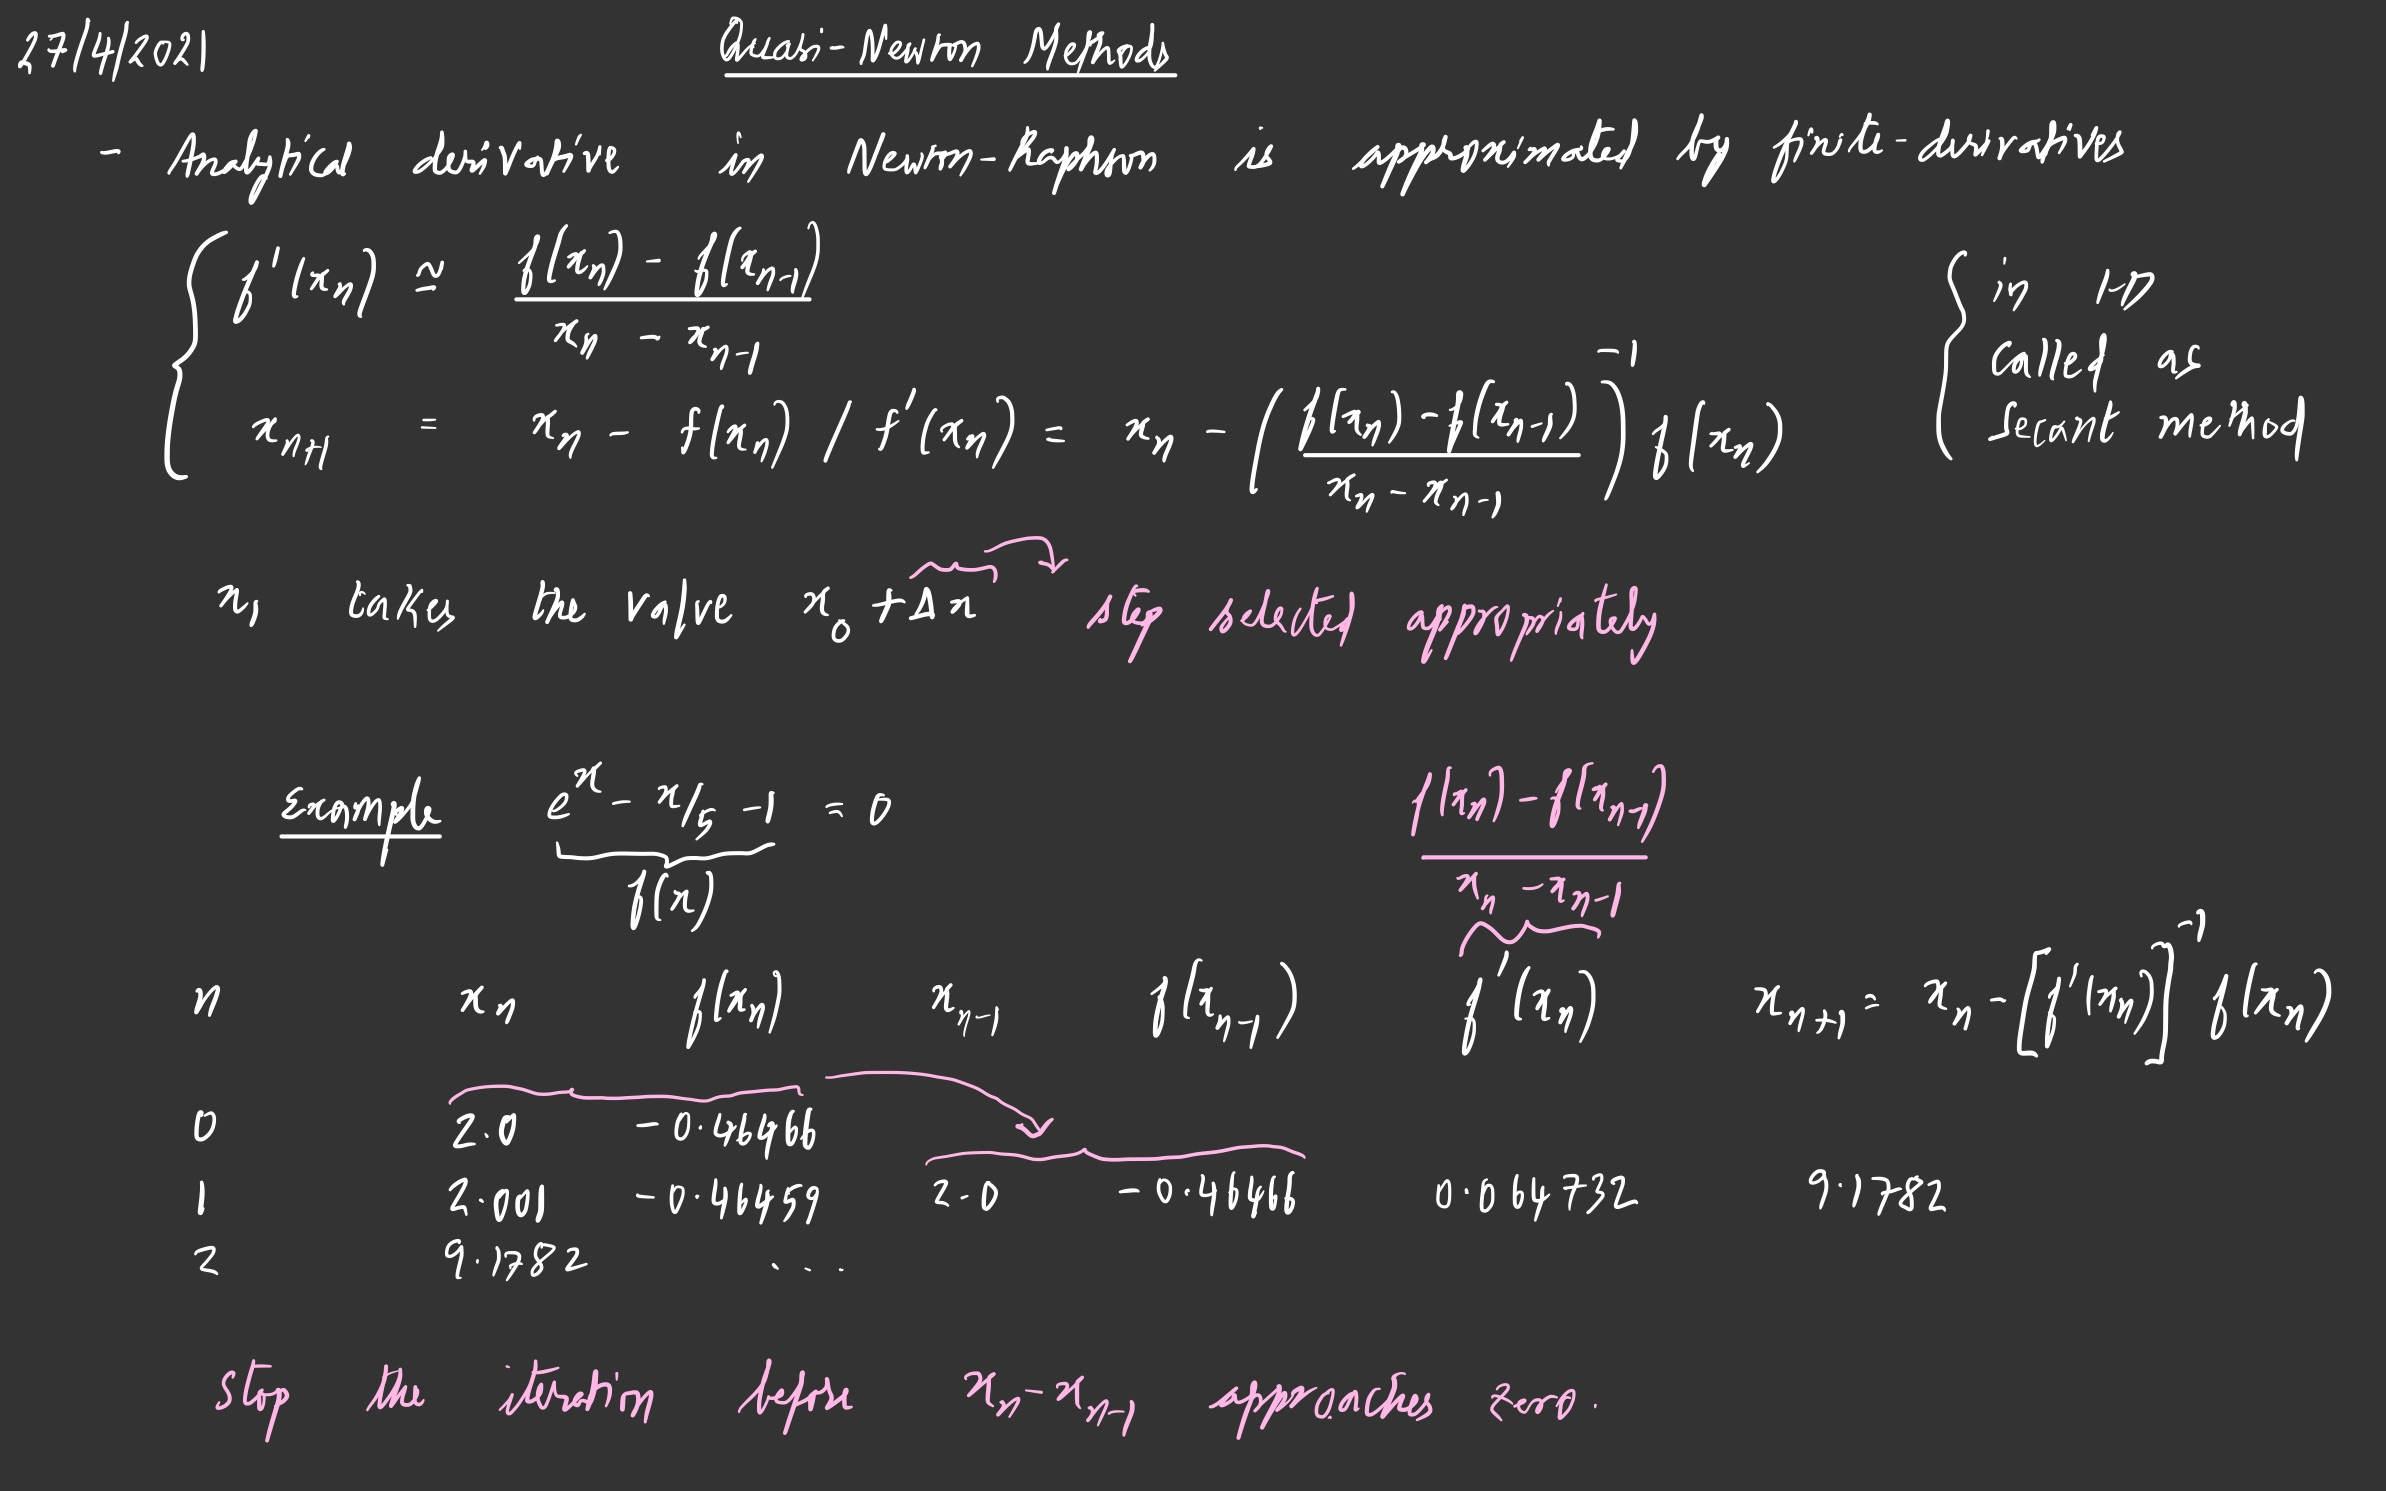 27/4/2021
Quasi-Newton Methods
- Analytical derivative in Newton-Raphson is approximated by finite-derivatives
f'(xₙ) ≃ (f(xₙ) - f(xₙ₋₁)) / (xₙ - xₙ₋₁)
xₙ₊₁ = xₙ - f(xₙ) / f'(xₙ) = xₙ - ((f(xₙ) - f(xₙ₋₁)) / (xₙ - xₙ₋₁))⁻¹ f(xₙ)
in 1-D
called as
Secant method
x₁ takes the value x₀ + Δx step selected appropriately
Example eˣ - x/5 - 1 = 0
f(x)
(f(xₙ) - f(xₙ₋₁)) / (xₙ - xₙ₋₁)
n xₙ f(xₙ) xₙ₋₁ f(xₙ₋₁) f'(xₙ) xₙ₊₁ = xₙ - [f'(xₙ)]⁻¹ f(xₙ)
0 2.0 -0.46466
1 2.001 -0.46459 2.0 -0.46466 0.064732 9.1782
2 9.1782 ...
Stop the iteration before xₙ - xₙ₋₁ approaches zero.